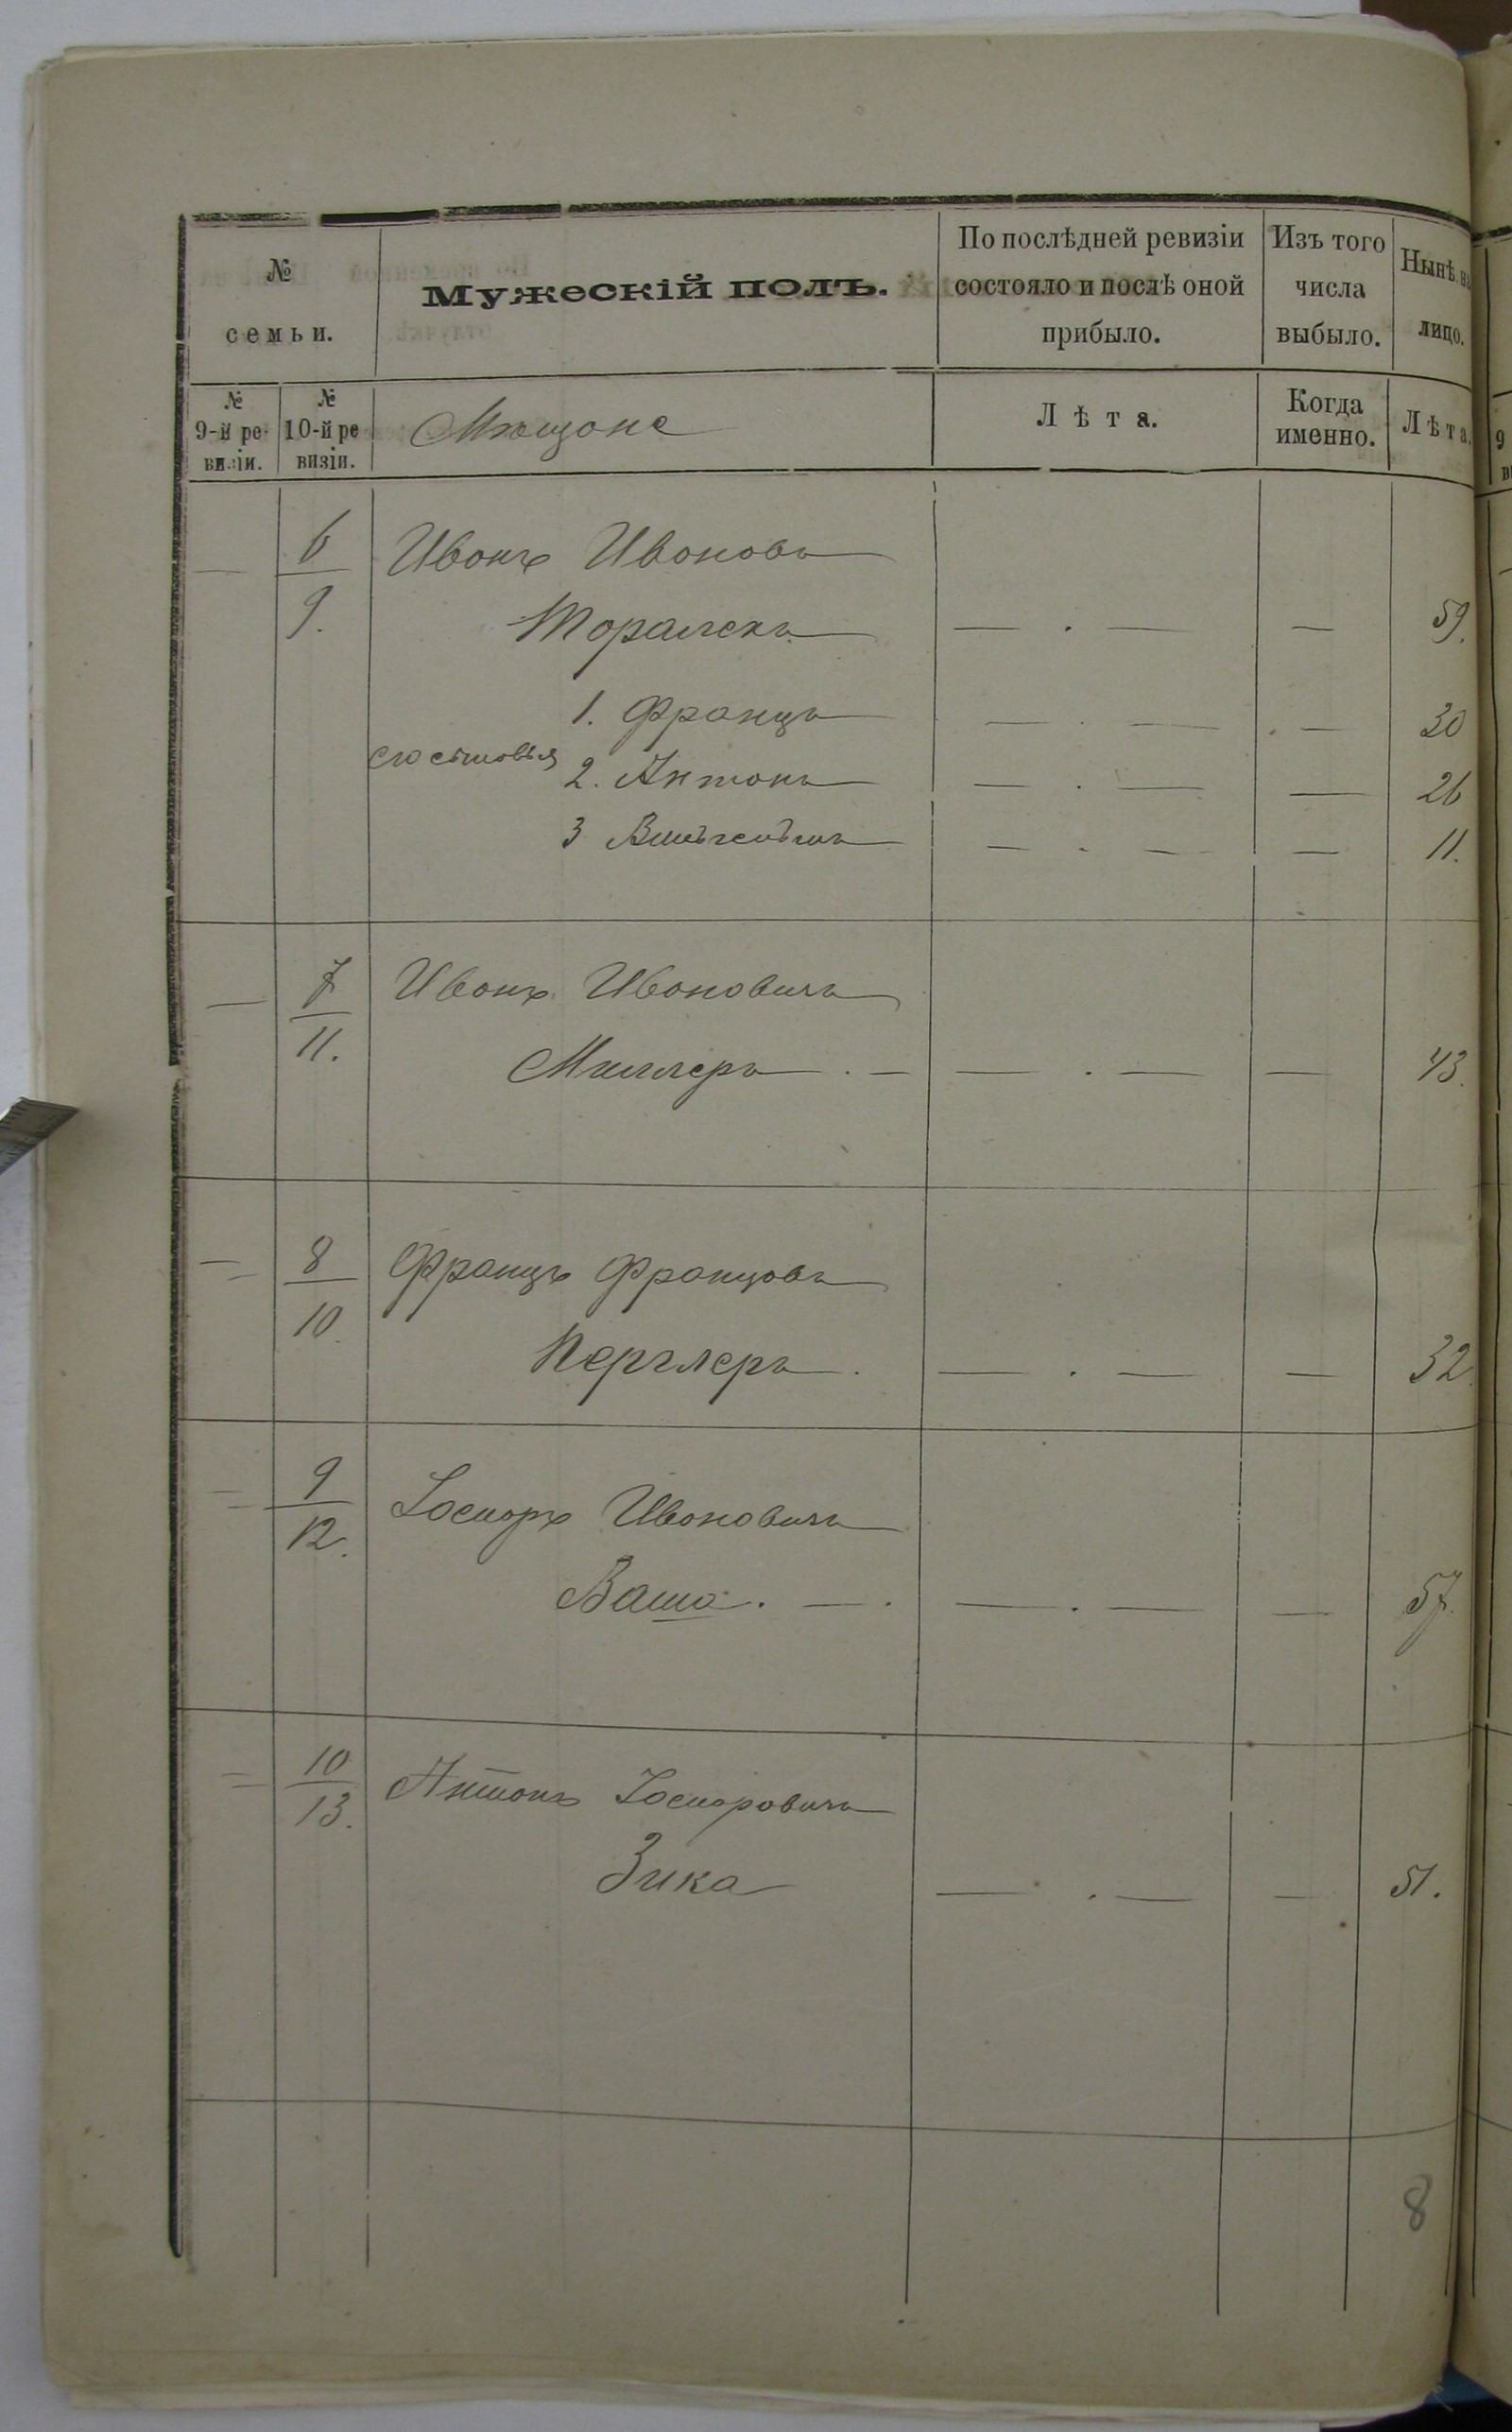 № семьи.
Мужескій полъ.
По послѣдней ревизіи состояло и послѣ оной прибыло.
Изъ того числа выбыло.
Нынѣ на лицо.
№ 9-й ревизіи.
№ 10-й ревизіи.
Мѣщане
Лѣта.
Когда именно.
Лѣта.
— 6 Иванъ Ивановъ
9. — . — — 59.
1. Францъ — . — — 30
его сыновья 2. Антонъ — . — — 26
3 Вильгельмъ — . — — 11.
— 7 Иванъ Ивановичъ
11. Миллеръ . — — . — — 43.
— 8 Францъ Францовъ
10. Перглеръ . — . — — 32.
— 9 Іосифъ Ивановичъ
12. Ваша. — . — . — — 57.
— 10 Антонъ Іосифовичъ
13. Зика — . — — 51.
8